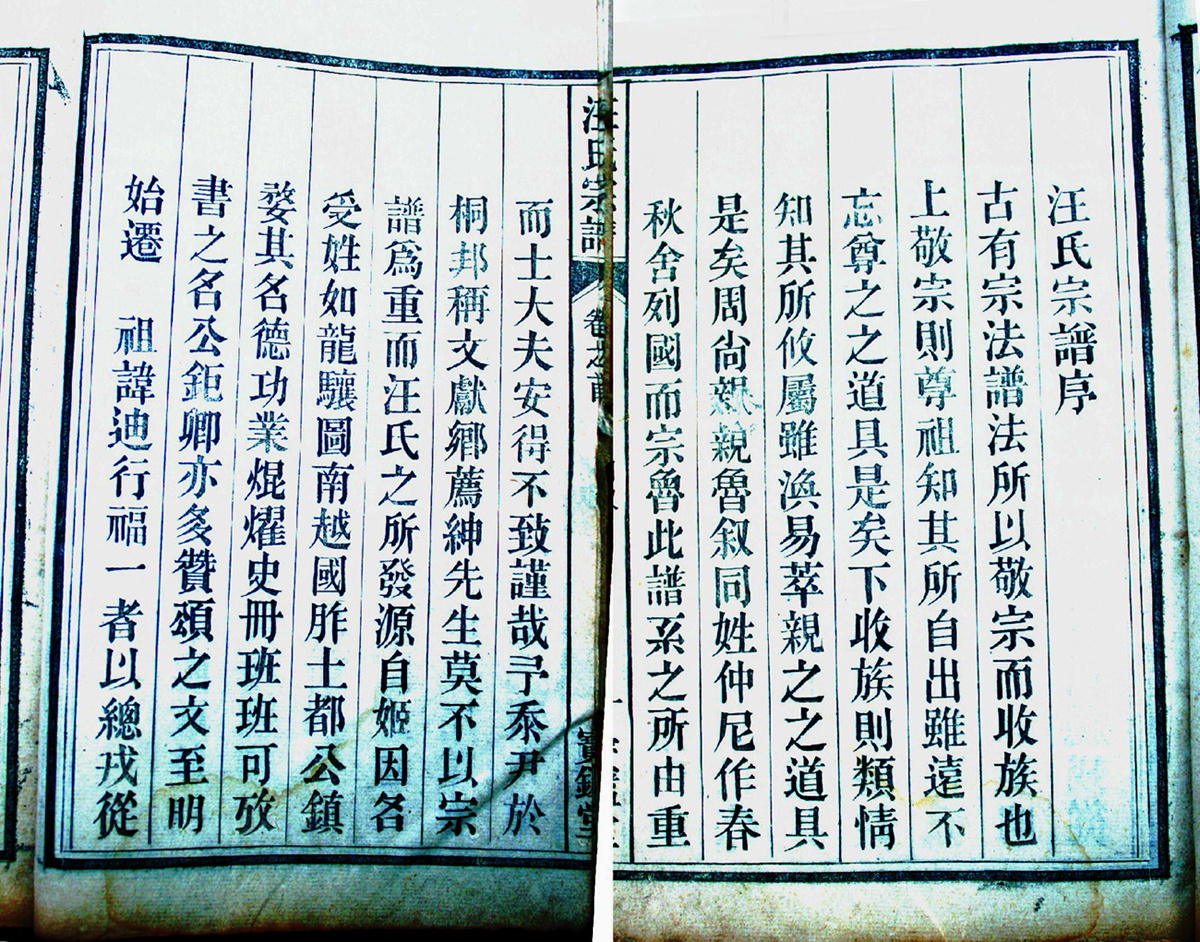 汪氏宗譜序
古有宗法譜法所以敬宗而收族也
上敬宗則尊祖知其所自出雖遠不
忘尊之之道具是矣下收族則類情
知其所攸屬雖渙易萃親之之道具
是矣周尚親親魯叙同姓仲尼作春
秋舍列國而宗魯此譜系之所由重
汪氏宗譜
卷之前
寶鎰堂
而士大夫安得不致謹哉予忝尹於
桐邦稱文獻鄉薦紳先生莫不以宗
譜爲重而汪氏之所發源自姬因名
受姓如龍驤圖南越國胙土都公鎮
婺其名德功業焜燿史冊班班可攷
書之名公鉅卿亦多贊頌之文至明
始遷 祖諱迪行福一者以總戎從